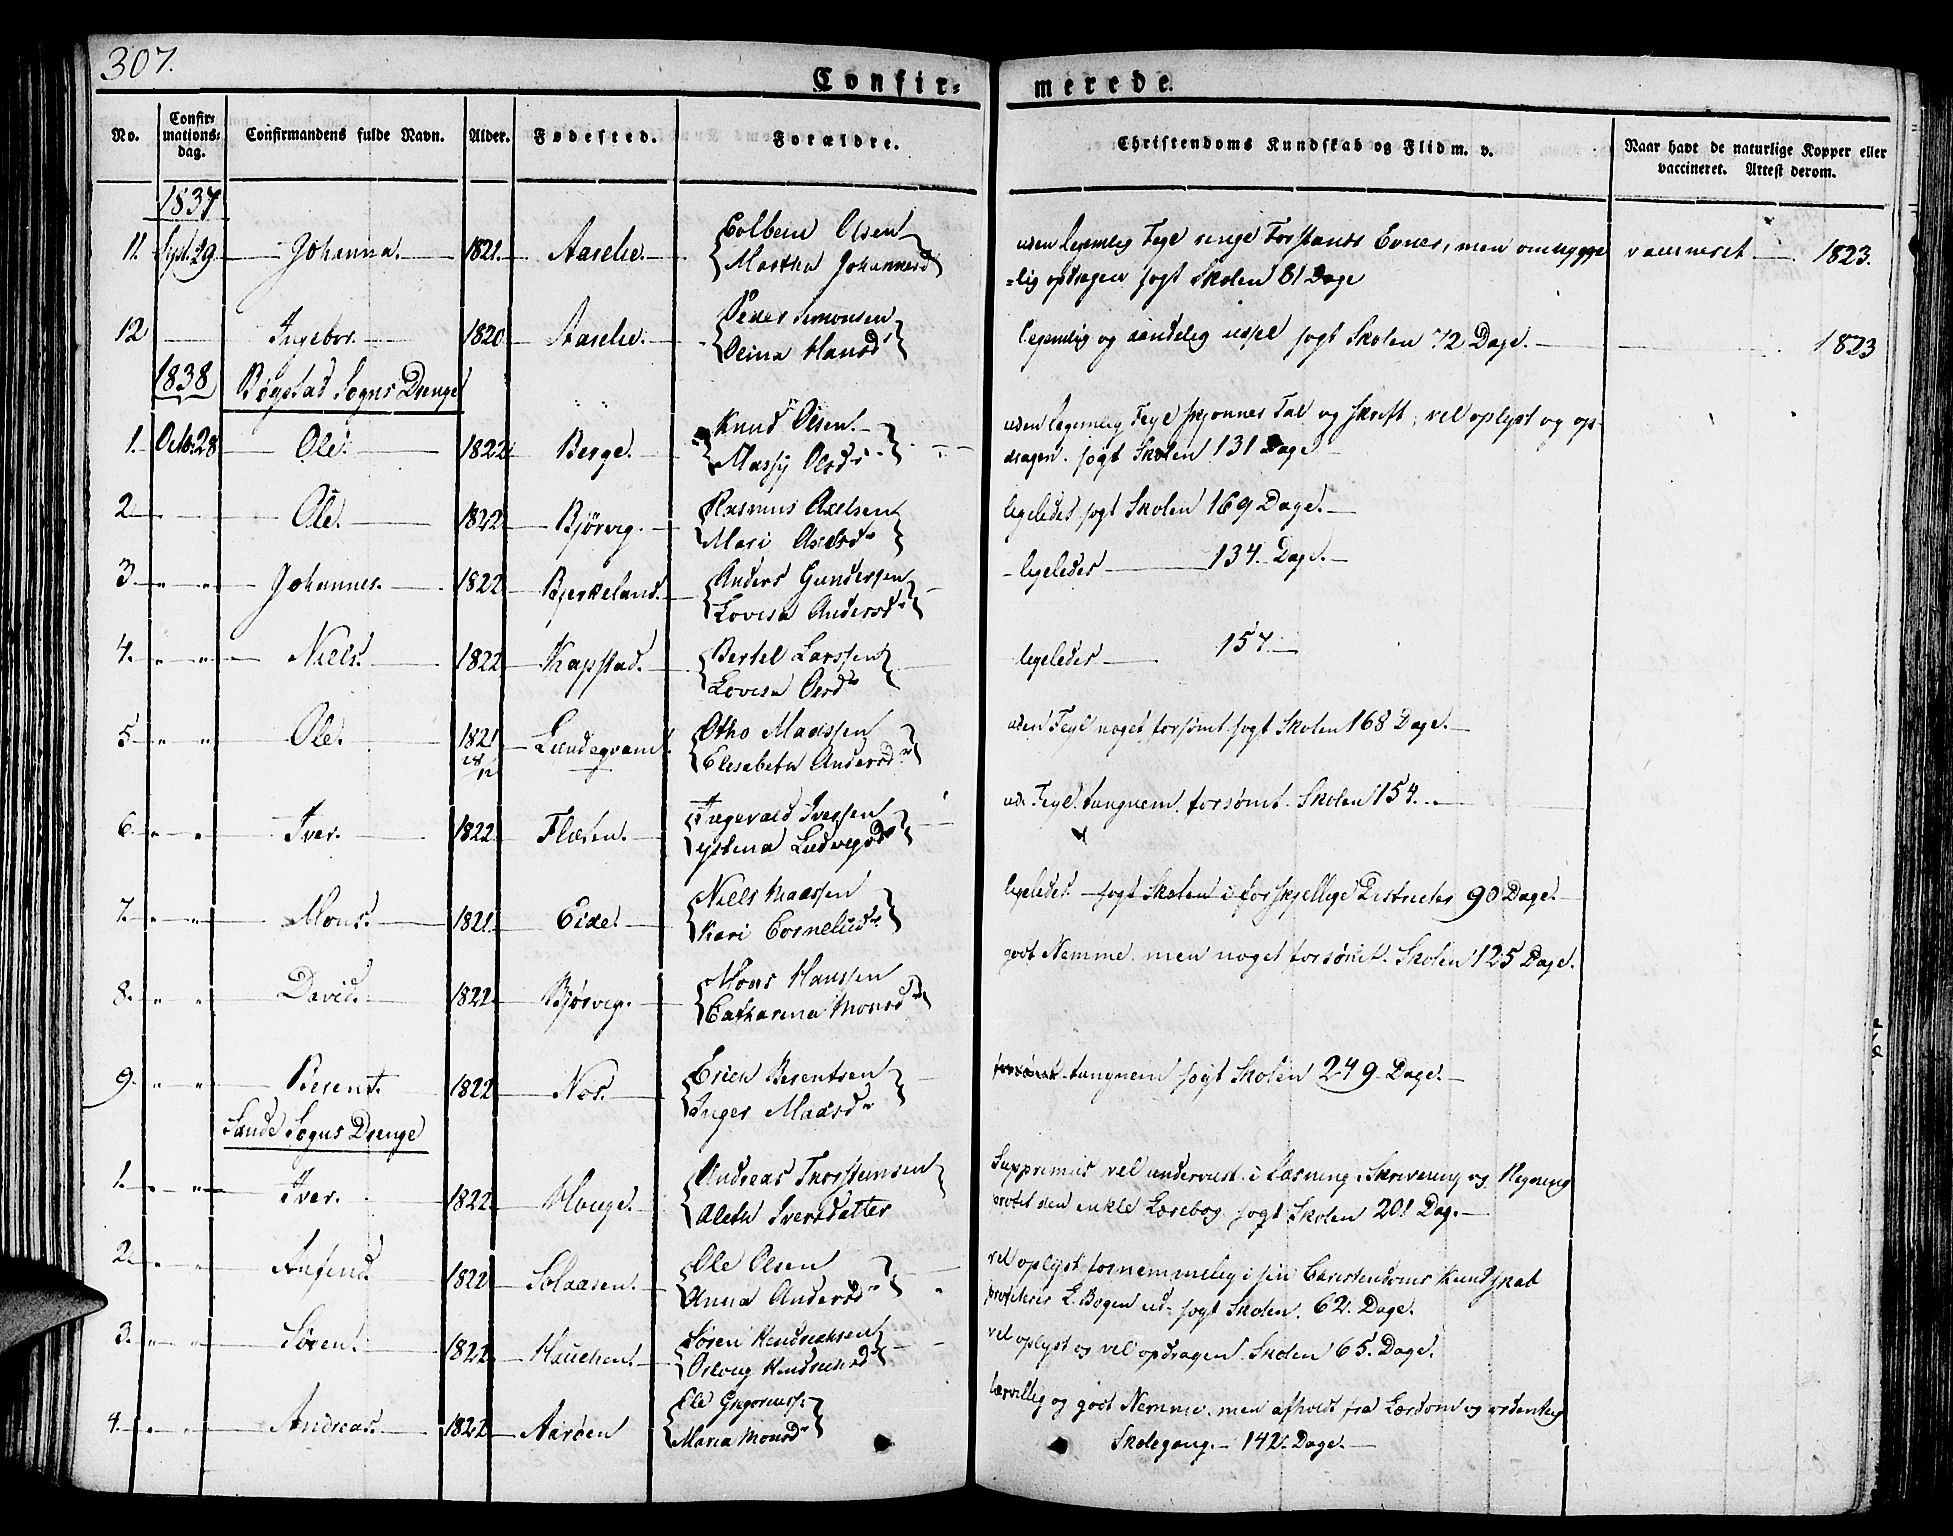 307.
Confir=
merede.
No.
Confir=
mations=
dag.
Confirmandens fulde Navn.
Alder.
Fødested.
Forældre.
Christendoms Kundskab og Flid m. v.
Naar havt de naturlige Kopper eller
vaccineret. Attest derom.
1837
11. Sept. 29 Johanna. 1821. Aarelie. Colbein Olsen
Martha Johannesd
uden legemlig Fejl ringe Forstands Evner, men omhygge
=lig opdragen søgt Skolen 81 Dage
vaccineret 1823.
12 Ingebor. 1820 Aarelie. Peder Simonsen
Oline Hansd
legemlig og aandelig ussel søgt Skolen 72 Dage. 1823
1838 Bøgstad Sogns Drenge
1. Octb. 28 Ole. 1822 Berge. Knud Olsen.
Massy Olsd
uden legemlig Fejl skjønner Tal og Skrift, vel oplyst og op-
dragen. søgt Skolen 131 Dage
2 Ole. 1822 Bjørvig. Rasmus Axelsen
Mari Axelsd
ligeledes søgt Skolen 169 Dage.
3 Johannes. 1822 Bjerkeland. Anders Gundersen
Lovisa Andersd
ligeledes 134. Dage.
4. Niels. 1822 Kapstad. Bertel Larssen
Lovisa Olsd
ligeledes 157.
5 Ole. 1821 Lundegvam. Otho Madssen
Elisabeth Andersd
uden Fejl noget forsømt søgt Skolen 168 Dage.
6 Iver. 1822 Flæten. Ingevald Iverssen
Ludvigsd
ud. Fejl. tungnem. forsømt. Skolen 154.
7. Mons. 1821 Eide. Niels Madssen
Kari Corneliid
ligeledes søgt Skolen i forskjellige Districter 90 Dage.
8. David. 1822 Bjørvig. Mons Hanssen
Catharina Monsd
godt Nemme. men noget forsømt. Skolen 125 Dage.
9. Berent. 1822 Nos. Erich Berentsen
Inger Madsd
forsømt tungnem søgt Skolen 249 Dage.
Sande Sogns Drenge
1. Iver. 1822. Houge. Andreas Thorsteinsen
Aleth Iversdatter
vel underviist i Læsning, Skrivning og Regning
den enkle Læsebog søgt Skolen 201 Dag.
2. Anfind. 1822 Solaasen. Ole Olsen
Anna Andersd
vel oplyst fornemmelig i sin Christendoms Kundskab
L. Bogen ud. søgt Skolen. 62. Dage.
3. Søren. 1822 Hauchen. Søren Hendrichsen
Hendrichsd
vel oplyst og vel opdragen. Skolen 65. Dage.
4. Andreas. 1822 Aarøen Ole Gregoriuss.
Maria Monsd
lærvillig og godt Nemme. men afholdt fra Lærdom og ordentlig
Skolegang. 142. Dage.